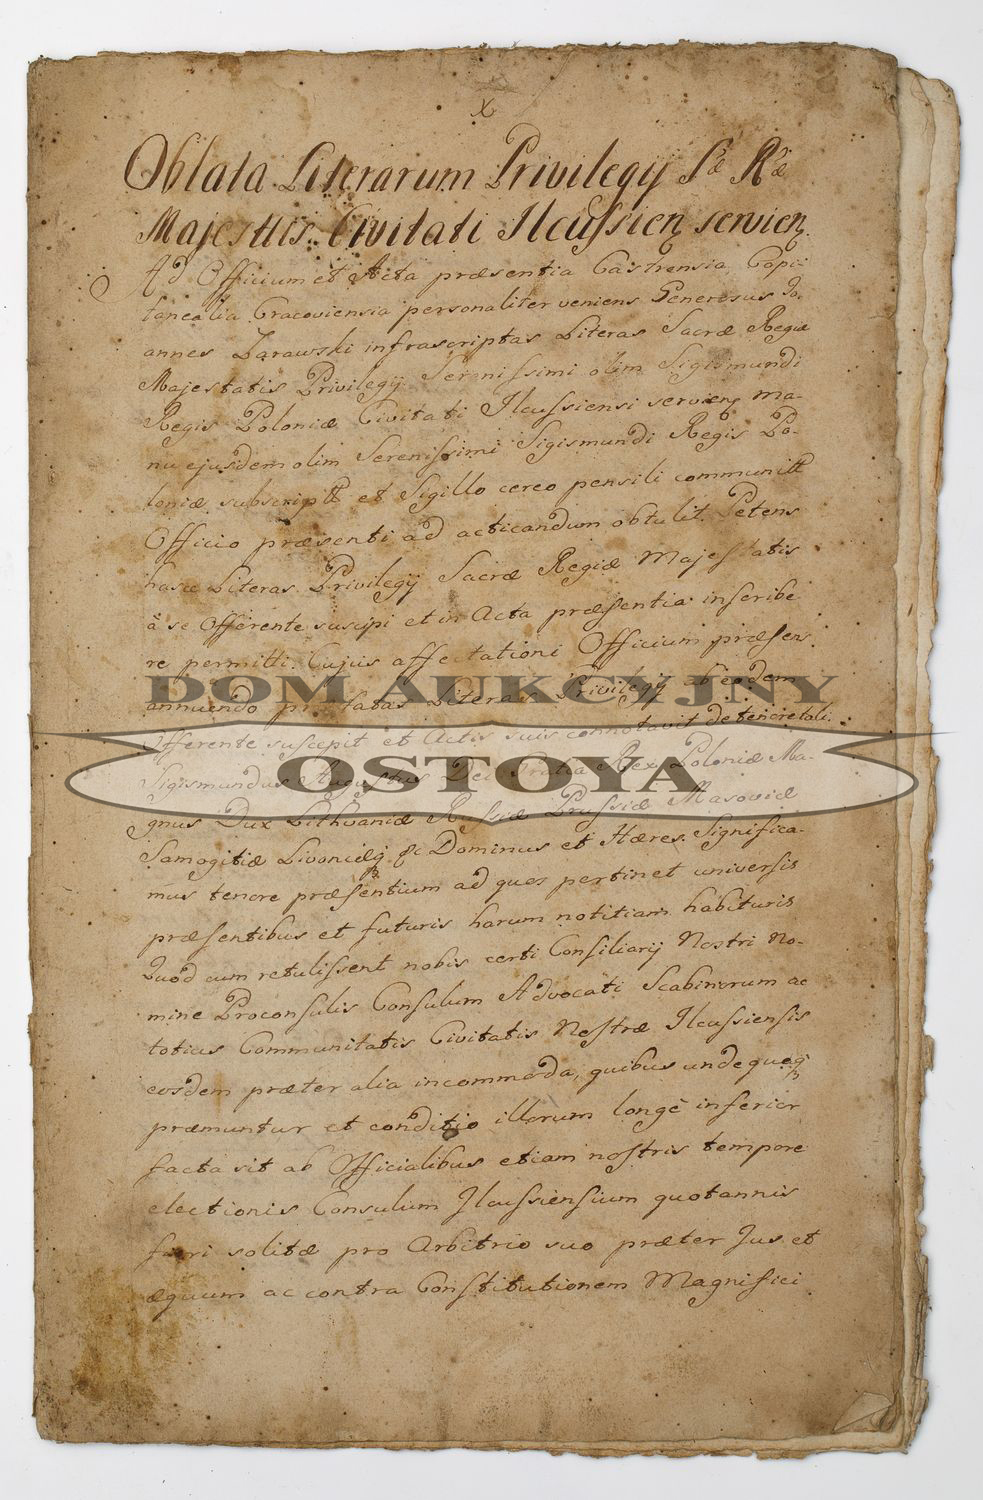 x
Oblata Literarum Privilegij Sæ Ræ
Majesttis Civitati Ilcussien servien.
Ad Officium et Acta præsentia Castrensia Capi-
tanealia Cracoviensia personaliter veniens Generosus Jo-
annes Zarawski infrascriptas Literas Sacræ Regiæ
Majestatis Privilegij Serenissimi olim Sigismundi
Regis Poloniæ Civitati Ilcussiensi servien ma-
nu ejusdem olim Serenissimi Sigismundi Regis Po-
loniæ subscriptt et Sigillo cereo pensili communitt
Officio præsenti ad acticandum obtulit. Petens
hasce Literas Privilegij Sacræ Regiæ Majestatis
à se Offerente suscipi et in Acta præsentia inscribe
re permitti. Cujus affectationi Officium præsens
annuendo præfatas Literas Privilegij ab eodem
Offerente suscepit et Actis suis connotavit de tenore tali.
Sigismundus Augustus Dei Gratia Rex Poloniæ Ma-
gnus Dux Lithvaniæ Russiæ Prussiæ Masoviæ
Samogitiæ Livoniæq &c Dominus et Hæres. Significa-
mus tenore præsentium ad quos pertinet universis
præsentibus et futuris harum notitiam habituris
Quod cum retulissent nobis certi Consiliarij Nostri No-
mine Proconsulis Consulum Advocati Scabinorum ac
totius Communitatis Civitatis Nostræ Ilcussiensis
eosdem præter alia incommoda, quibus undequaq
præmuntur et conditio illorum longè inferior
facta sit ab Officialibus etiam nostris tempore
electionis Consulum Ilcussiensium quotannis
fieri solitæ pro Arbitrio suo præter Jus et
æquum ac contra Constitutionem Magnifici
DOM AUKCYJNY
OSTOYA